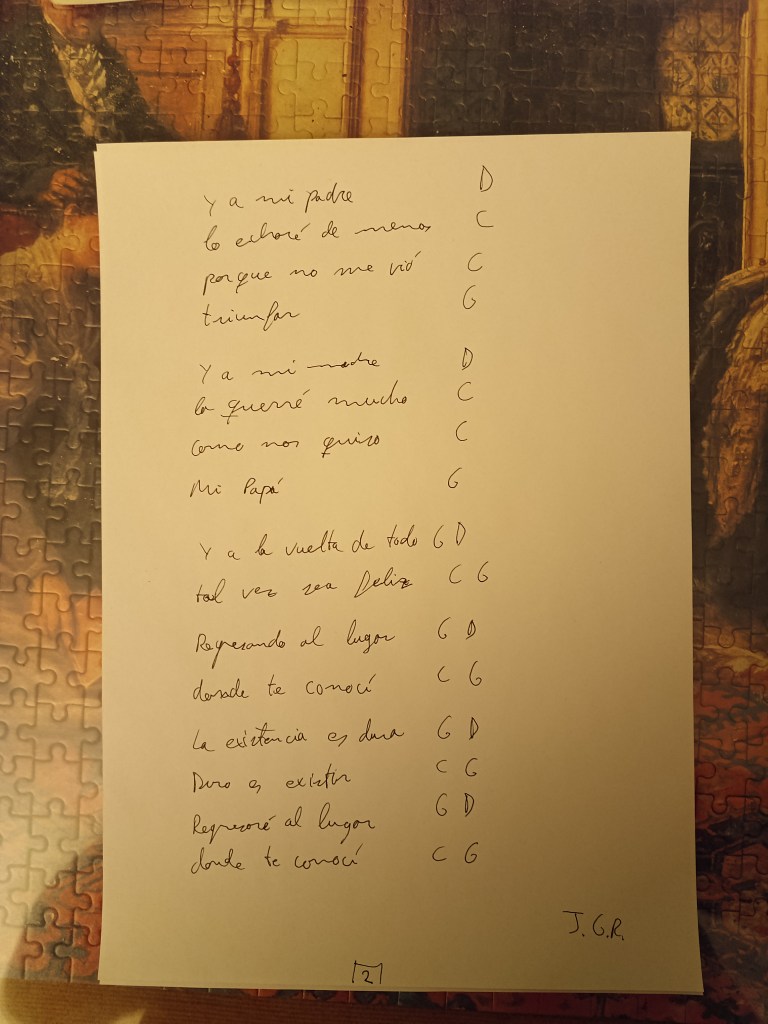 Y a mi padre D
lo echaré de menos C
porque no me vió C
triunfar G
Y a mi madre D
la querré mucho C
como nos quiso C
Mi Papá G
Y a la vuelta de todo G D
tal vez sea feliz C G
Regresando al lugar G D
donde te conocí C G
La existencia es dura G D
Duro es existir C G
Regresaré al lugar G D
donde te conocí C G
J. G.R.
2